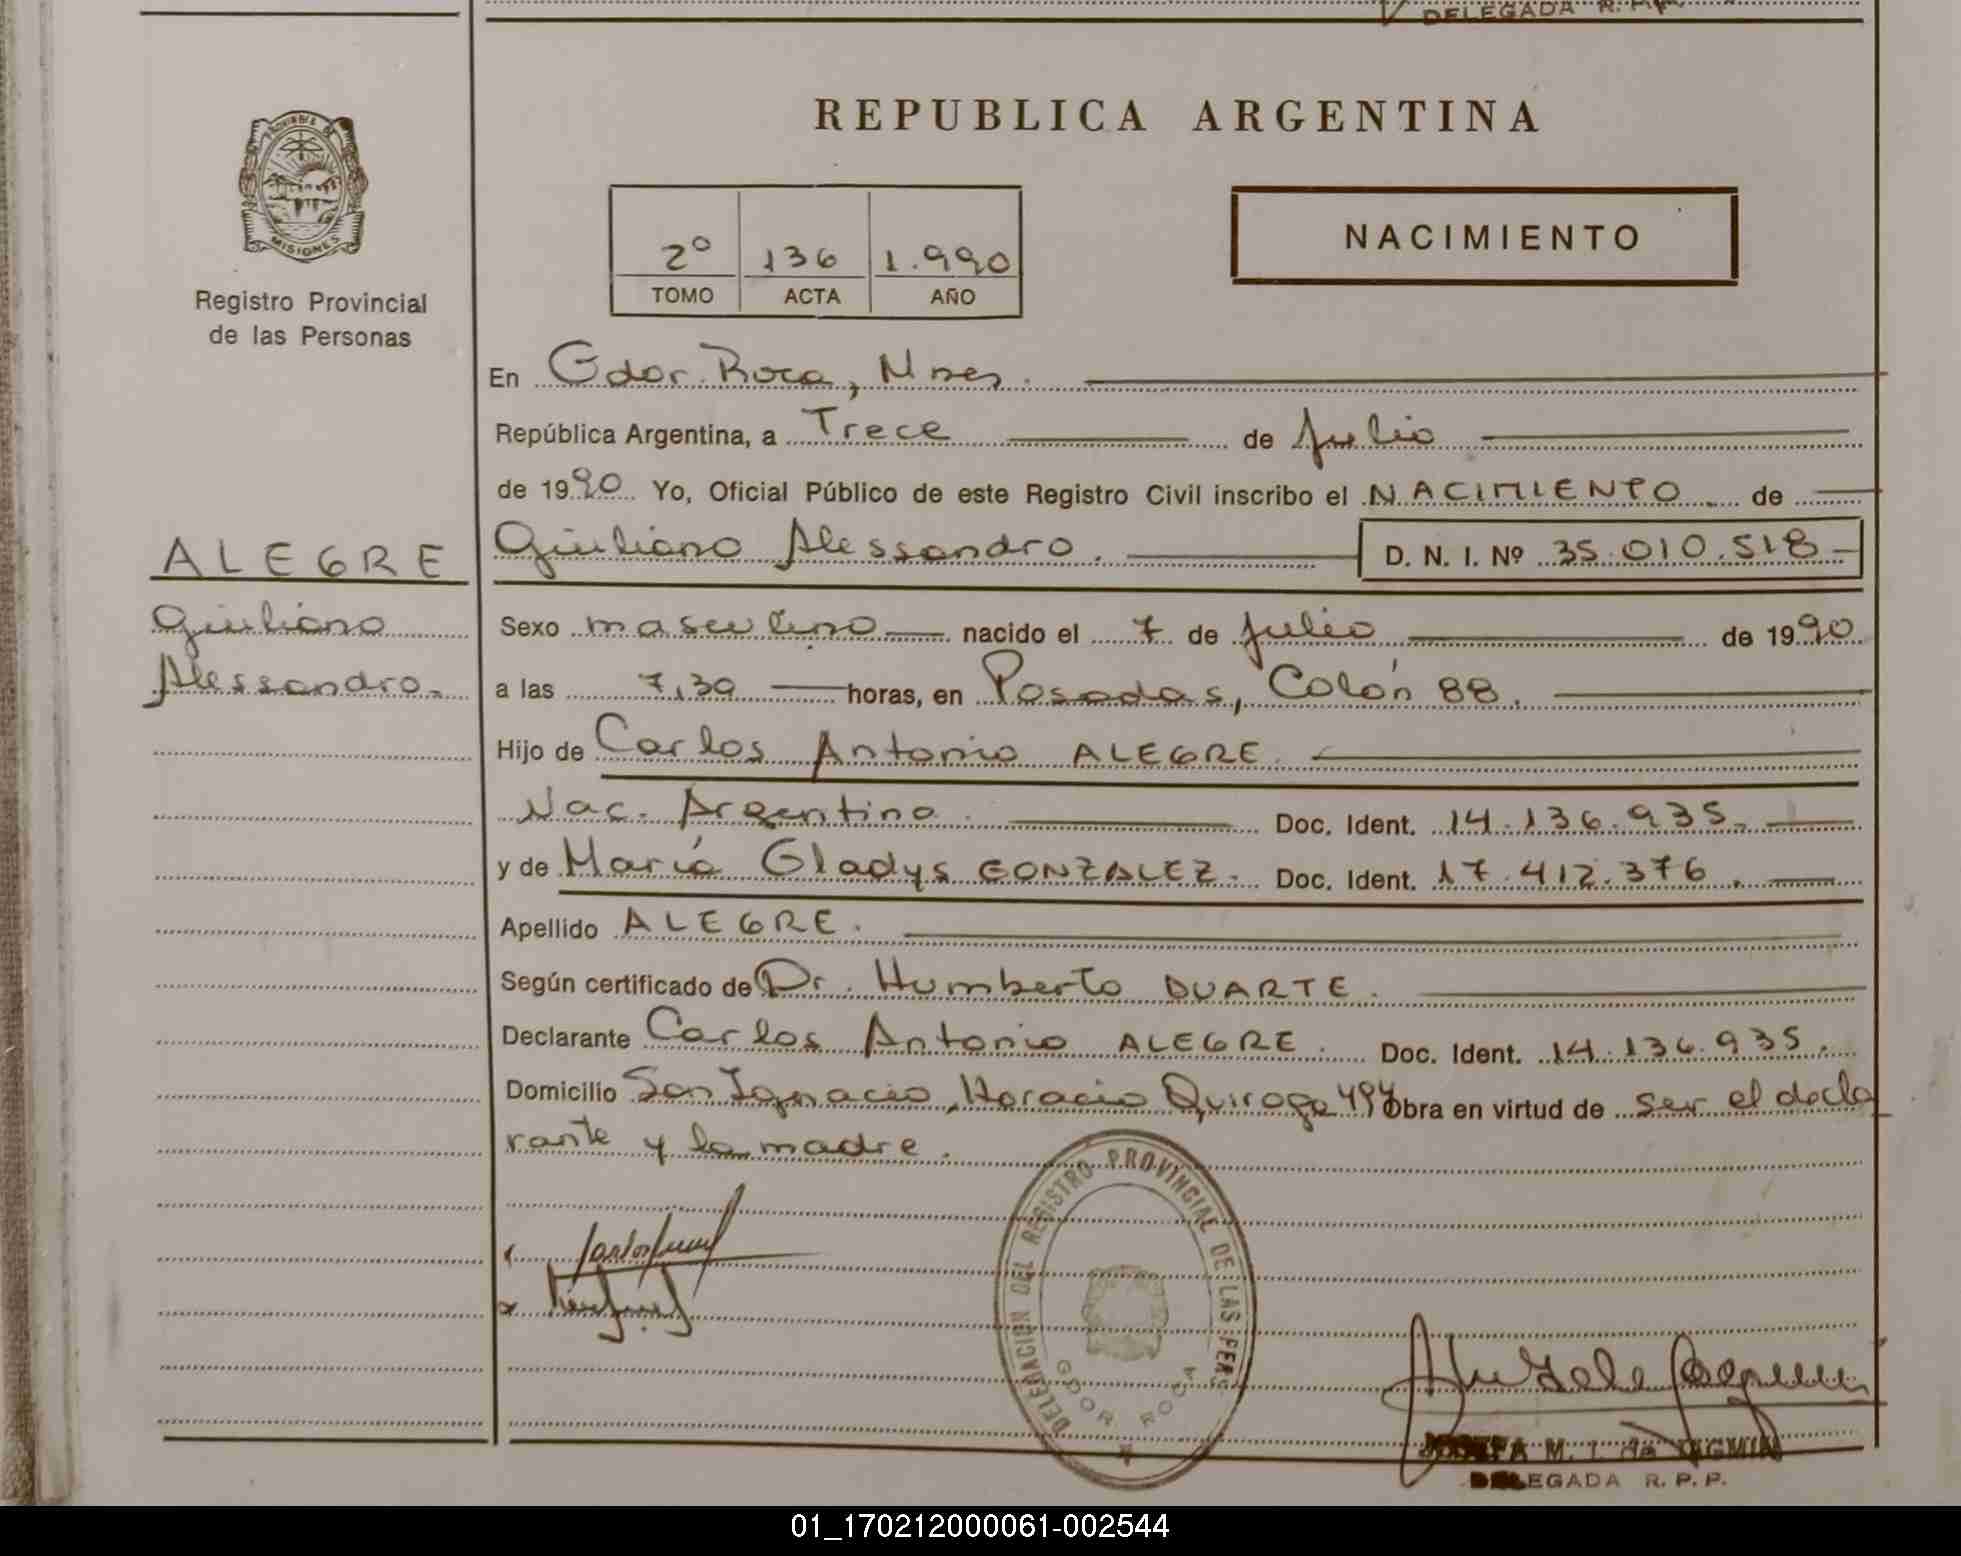 DELEGADA R. P. P.
PROVINCIA DE
MISIONES
Registro Provincial
de las Personas
REPUBLICA ARGENTINA
NACIMIENTO
2º 136 1.990
TOMO ACTA AÑO
En Gdor. Roca, Mnes.
República Argentina, a Trece de Julio
de 1990 Yo, Oficial Público de este Registro Civil inscribo el NACIMIENTO de
ALEGRE
Giuliano Alessandro. D. N. I. Nº 35.010.518
Giuliano
Alessandro.
Sexo masculino nacido el 7 de julio de 1990
a las 7,30 horas, en Posadas, Colón 88.
Hijo de Carlos Antonio ALEGRE.
Nac. Argentina. Doc. Ident. 14.136.935.
y de María Gladys GONZALEZ. Doc. Ident. 17.412.376.
Apellido ALEGRE.
Según certificado de Dr. Humberto DUARTE.
Declarante Carlos Antonio ALEGRE. Doc. Ident. 14.136.935.
Domicilio San Ignacio, Horacio Quiroga Obra en virtud de ser el decla
rante y la madre.
DELEGACION DEL REGISTRO PROVINCIAL DE LAS PERS
GDOR ROCA
M. I. de
DELEGADA R. P. P.
01_170212000061-002544